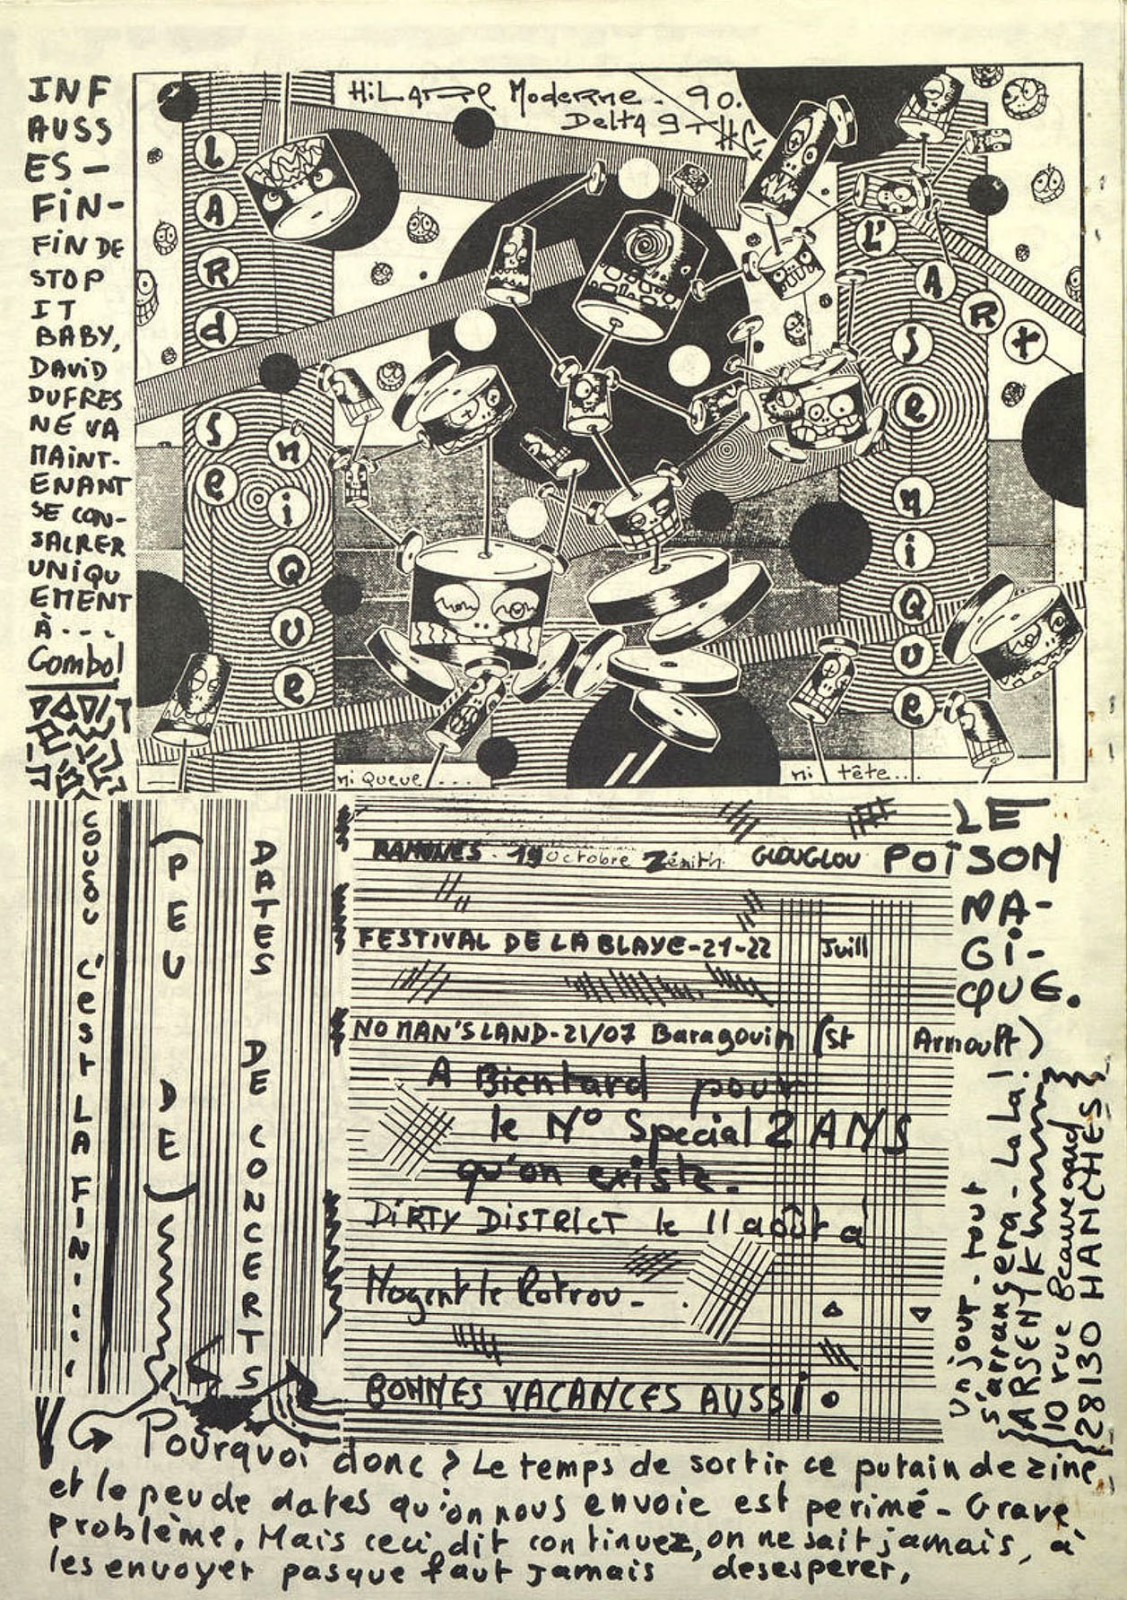 INF
AUSS
ES -
FIN-
FIN DE
STOP
IT
BABY,
DAVID
DUFRES
NE VA
MAINT-
ENANT
SE CON-
SACRER
UNIQU
EMENT
À...
Combo!
HiLARe Moderne - 90.
Delta 9 THC
LARd
Se
niQue
L'ARt
Se
niQue
ni Queue....
ni tête...
coucou c'est LA FIN!!!!
(PEU DE)
DATES DE CONCERTS
RAMONES - 19 Octobre Zénith
GLOUGLOU
FESTIVAL DE LA BLAYE - 21-22 Juill
NO MAN'S LAND - 21/07 Baragouin (St Arnoult)
A Bientard pour
le N° Special 2 ANS
qu'on existe.
DiRTY DiSTRICT le 11 août à
Nogent le Rotrou -
BONNES VACANCES AUSSI.
LE
POISON
MA-
GI-
QUE.
un jour - tout
s'arrangera - La La!
{ARSENYK hmmmm}
{10 rue Beauregard}
{28130 HANCHES}
Pourquoi donc ? Le temps de sortir ce putain de zine,
et le peu de dates qu'on nous envoie est perimé - Grave
problème. Mais ceci dit continuez, on ne sait jamais, à
les envoyer pasque faut jamais desesperer,